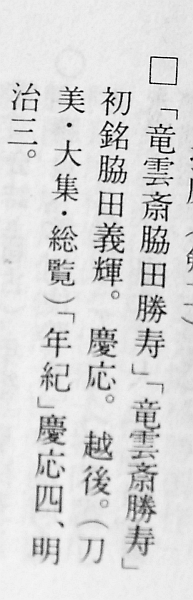 □「竜雲斎脇田勝寿」「竜雲斎勝寿」
初銘脇田義輝。慶応。越後。（刀
美・大集・総覧）「年紀」慶応四、明
治三。